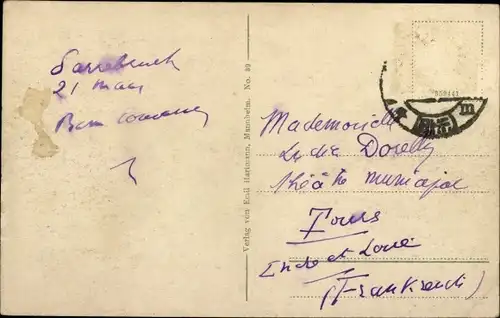 Sarrebruck
21 mars
Bon
Verlag von Emil Hartmann, Mannheim. No. 39
Mademoiselle
Lydia Dorelly
théâtre municipal
Tours
Indre et Loire
(Frankreich)